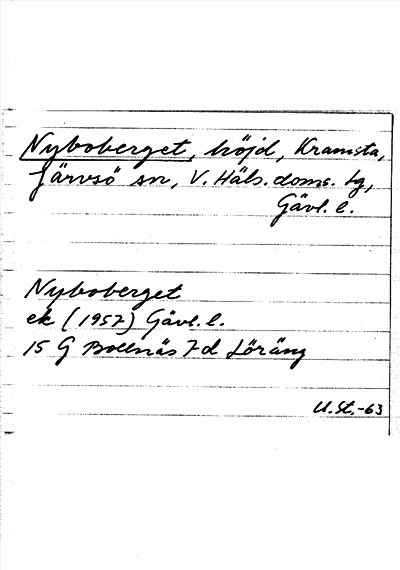 Nyboberget, höjd, Kramsta,
Järvsö sn, V. Häls. doms. tg,
Gävl. l.
Nyboberget
ek (1957) Gävl. l.
15 G Bollnäs 7d Löräng
U.St.-63